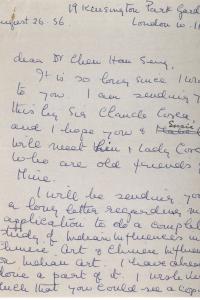 19 Kensington Park Gard
August 26. 56 London W. 11
dear Dr Chen Han Seng,
It is so long since I wro
to you. I am sending y
this by Sir Claude Corea,
and I hope you &
will meet him & Lady Core
who are old friends of
mine.
I will be sending yo
a long letter regarding m
application to do a complet
study of Indian influences in
Chinese art & Chinese influen
on Indian art. I have alrea
done a part of it. I wish
much that you could see a cop